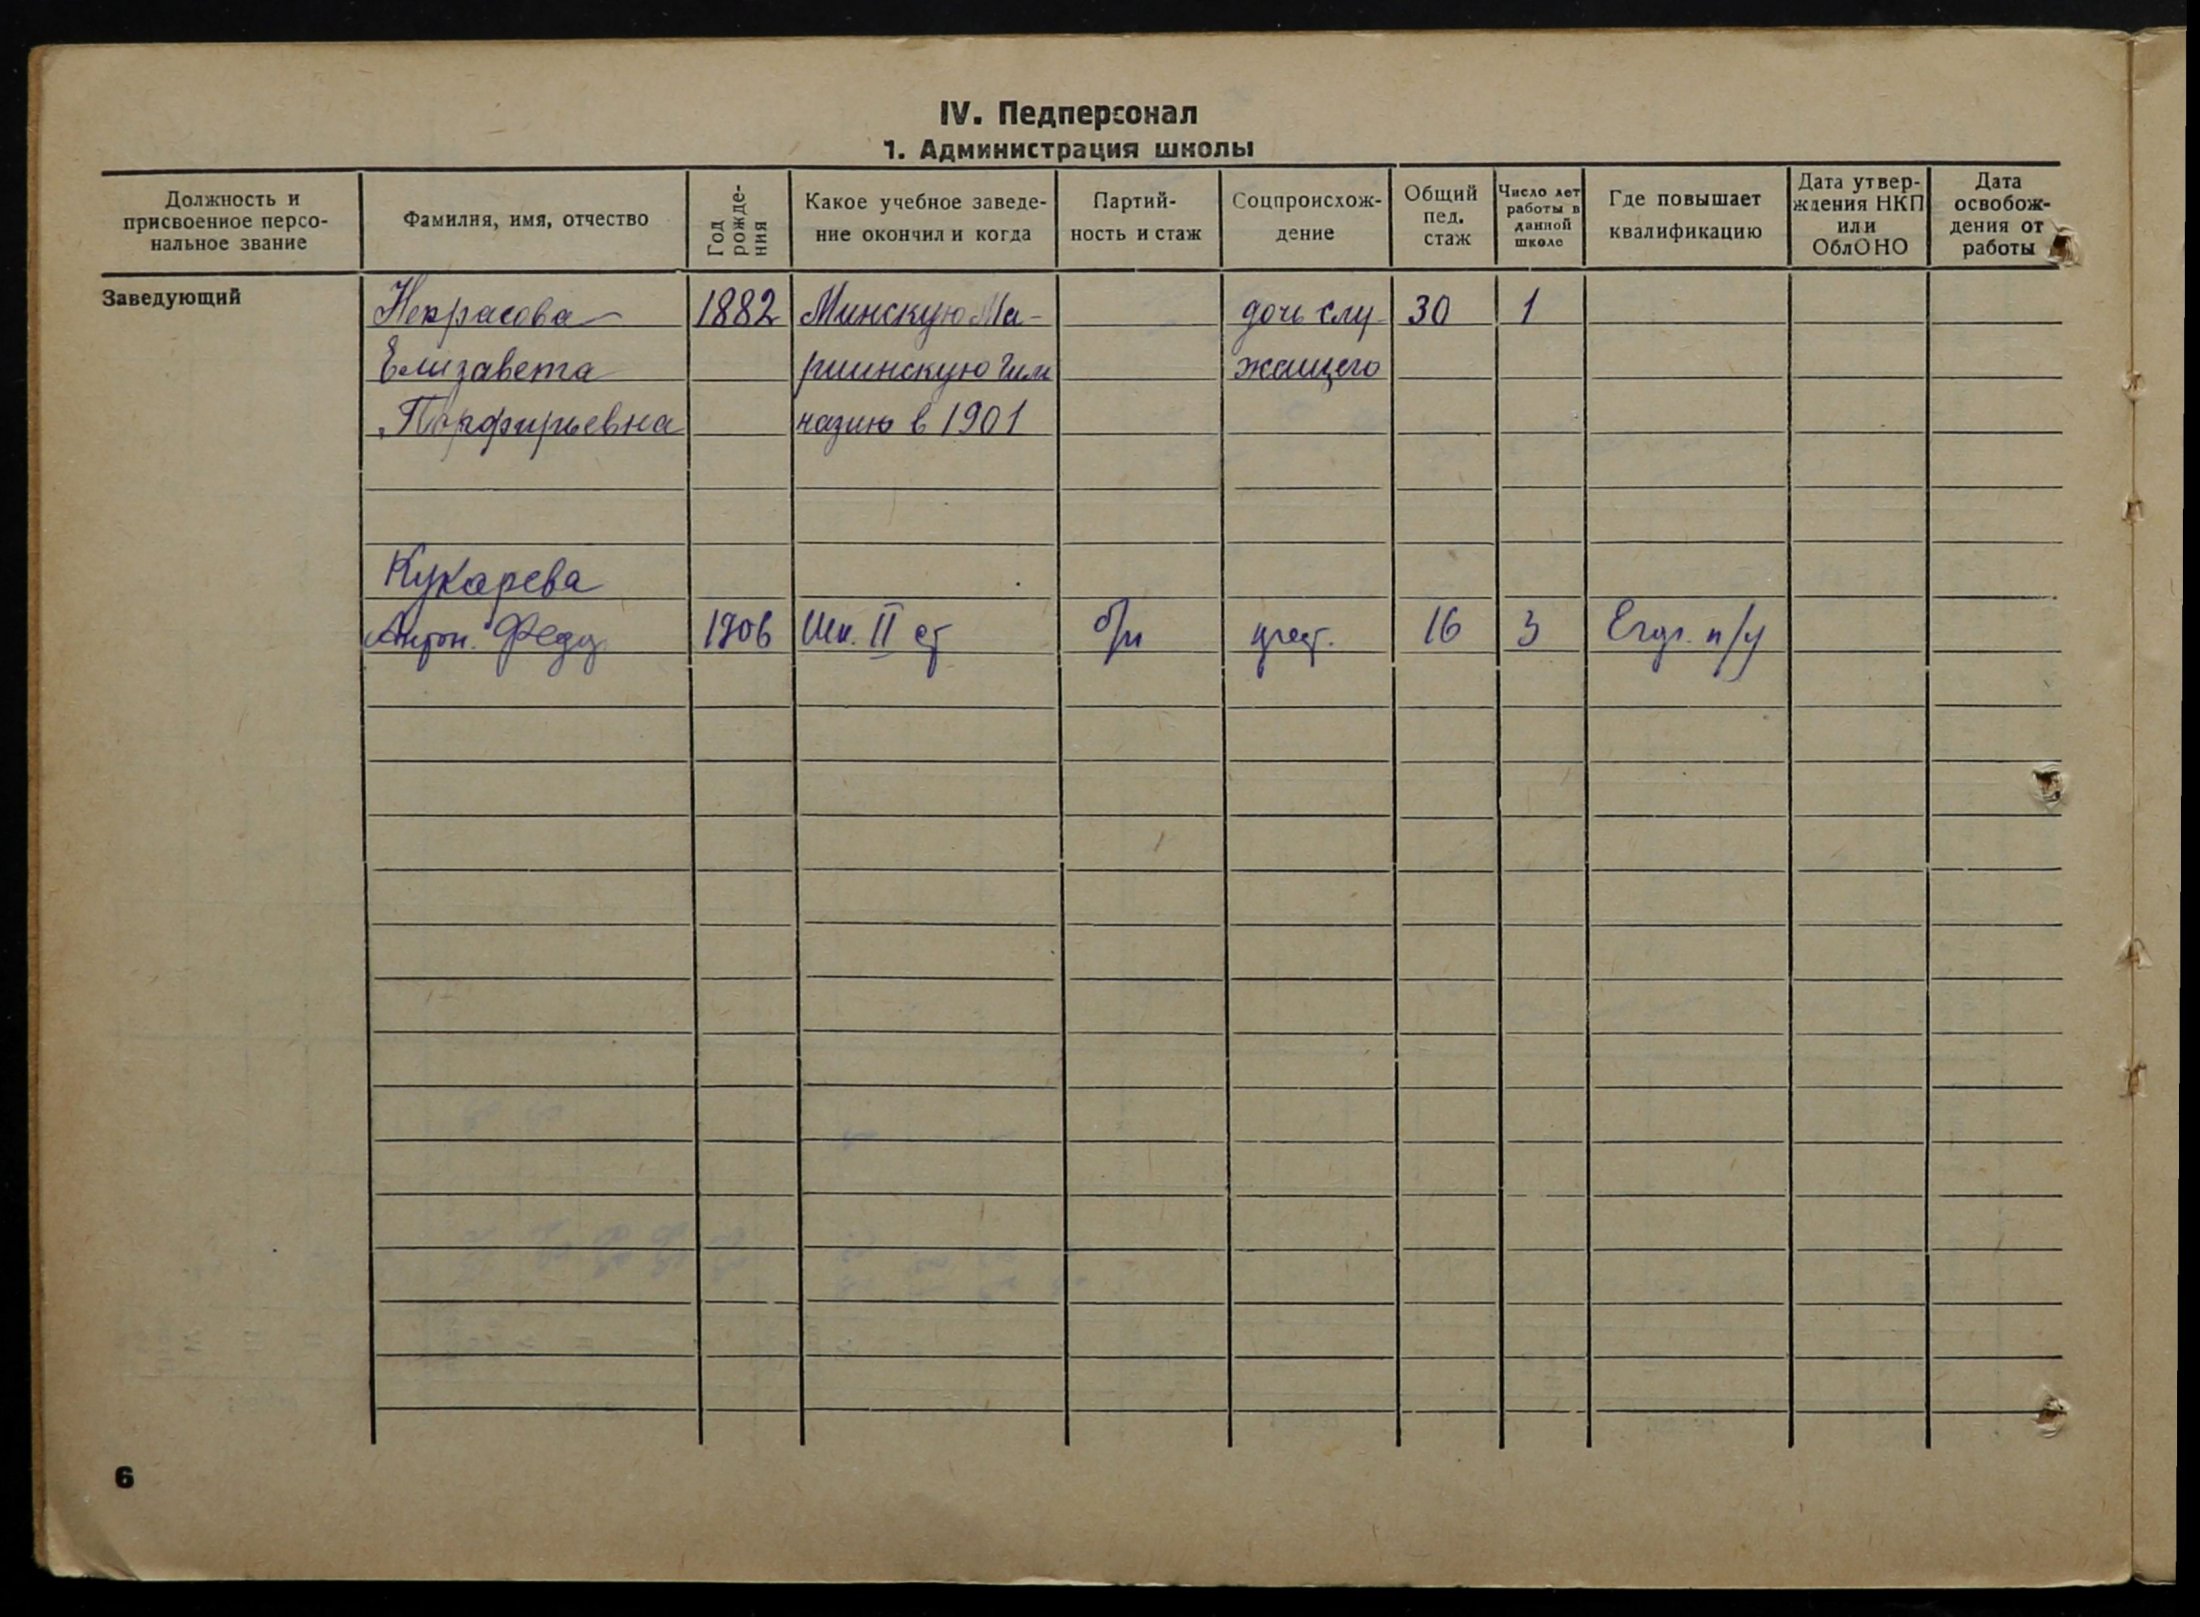 IV. Педперсонал
1. Администрация школы
Должность и
присвоенное персо-
нальное звание
Фамилия, имя, отчество
Год
рожде-
ния
Какое учебное заведе-
ние окончил и когда
Партий-
ность и стаж
Соцпроисхож-
дение
Общий
пед.
стаж
Число лет
работы в
данной
школе
Где повышает
квалификацию
Дата утвер-
ждения НКП
или
ОблОНО
Дата
освобож-
дения от
работы
Заведующий
Некрасова 1882 Минскую Ма- дочь слу- 30 1
Елизавета риинскую гим жащего
Порфирьевна назию в 1901
Кукарева
Антон. Фед. 1906 Шк. II ст б/п крест. 16 3 п/у
6